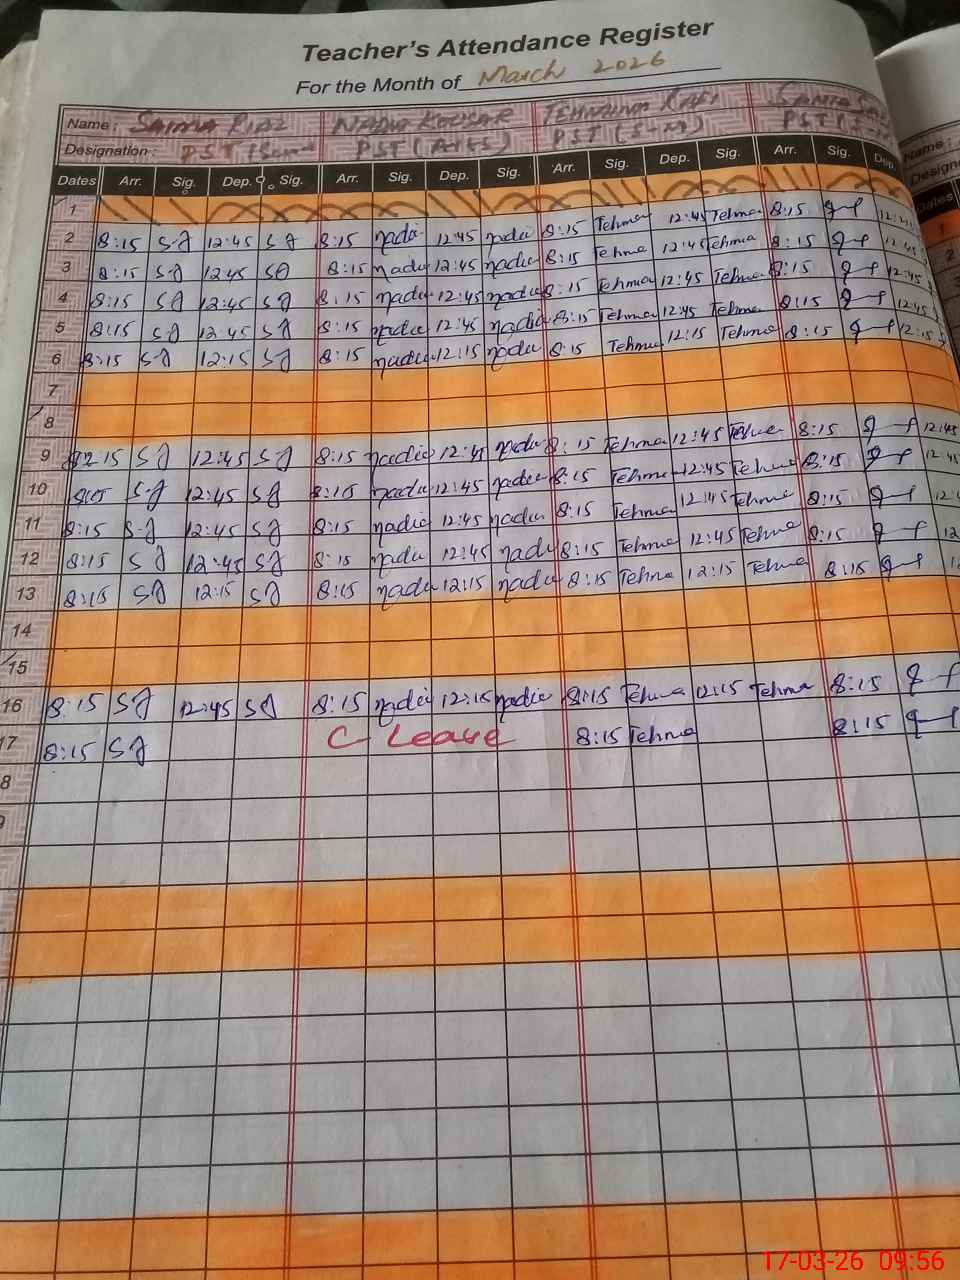 Teacher's Attendance Register
For the Month of March 2026
Name: SAIMA RIAZ NADIA KOUSAR TEHMINA RAFI SAMIA
Designation: PST PST (Arts) PST (S-M) PST (S-M)
Dates Arr. Sig. Dep. Sig. Arr. Sig. Dep. Sig. Arr. Sig. Dep. Sig. Arr. Sig. Dep.
1
2 8:15 SJ 12:45 SJ 8:15 nadi 12:45 nadi 8:15 Tehma 12:45 Tehma 8:15
3 8:15 SJ 12:45 SJ 8:15 nadi 12:45 nadi 8:15 Tehma 12:45 Tehma 8:15 12:45
4 8:15 SJ 12:45 SJ 8:15 nadi 12:45 nadi 8:15 Tehma 12:45 Tehma 8:15 12:45
5 8:15 SJ 12:45 SJ 8:15 nadi 12:45 nadi 8:15 Tehma 12:45 Tehma 8:15 12:45
6 8:15 SJ 12:15 SJ 8:15 nadi 12:15 nadi 8:15 Tehma 12:15 Tehma 8:15 12:15
7
8
9 8:15 SJ 12:45 SJ 8:15 nadi 12:45 nadi 8:15 Tehma 12:45 Tehma 8:15 12:45
10 SJ 12:45 SJ 8:15 nadi 12:45 nadi 8:15 Tehma 12:45 Tehma 8:15 12:45
11 8:15 SJ 12:45 SJ 8:15 nadi 12:45 nadi 8:15 Tehma 12:45 Tehma 8:15
12 8:15 SJ 12:45 SJ 8:15 nadi 12:45 nadi 8:15 Tehma 12:45 Tehma 8:15 12
13 8:15 SJ 12:15 SJ 8:15 nadi 12:15 nadi 8:15 Tehma 12:15 Tehma 8:15
14
15
16 8:15 SJ 12:45 SJ 8:15 nadi 12:15 nadi 8:15 Tehma 12:15 Tehma 8:15
17 8:15 SJ C Leave 8:15 Tehma 8:15
8
9
Name:
Design
Dates
1
2
17-03-26 09:56